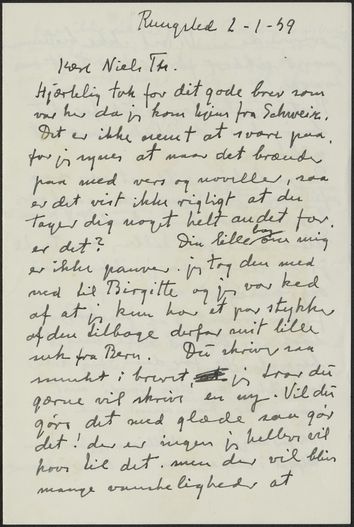 Rungsted 2-1-59
Kære Niels Th.
Hjærtelig tak for dit gode brev som
var her da jeg kom hjem fra Schweiz.
Det er ikke nemt at svare paa,
for jeg synes at naar det brænder
paa med vers og noveller, saa
er det vist ikke rigtigt at du
tager dig noget helt andet for.
er det? Din lille bog om mig
er ikke pauver. jeg tog den med
ned til Birgitte og jeg var ked
af at jeg kun har et par stykker
af den tilbage derfor mit lille
suk fra Bern. Du skriver saa
smukt i brevet, jeg tror du
gærne vil skrive en ny. Vil du
gøre det med glæde saa gør
det! der er ingen jeg hellere vil
have til det. men der vil blive
mange vanskeligheder at